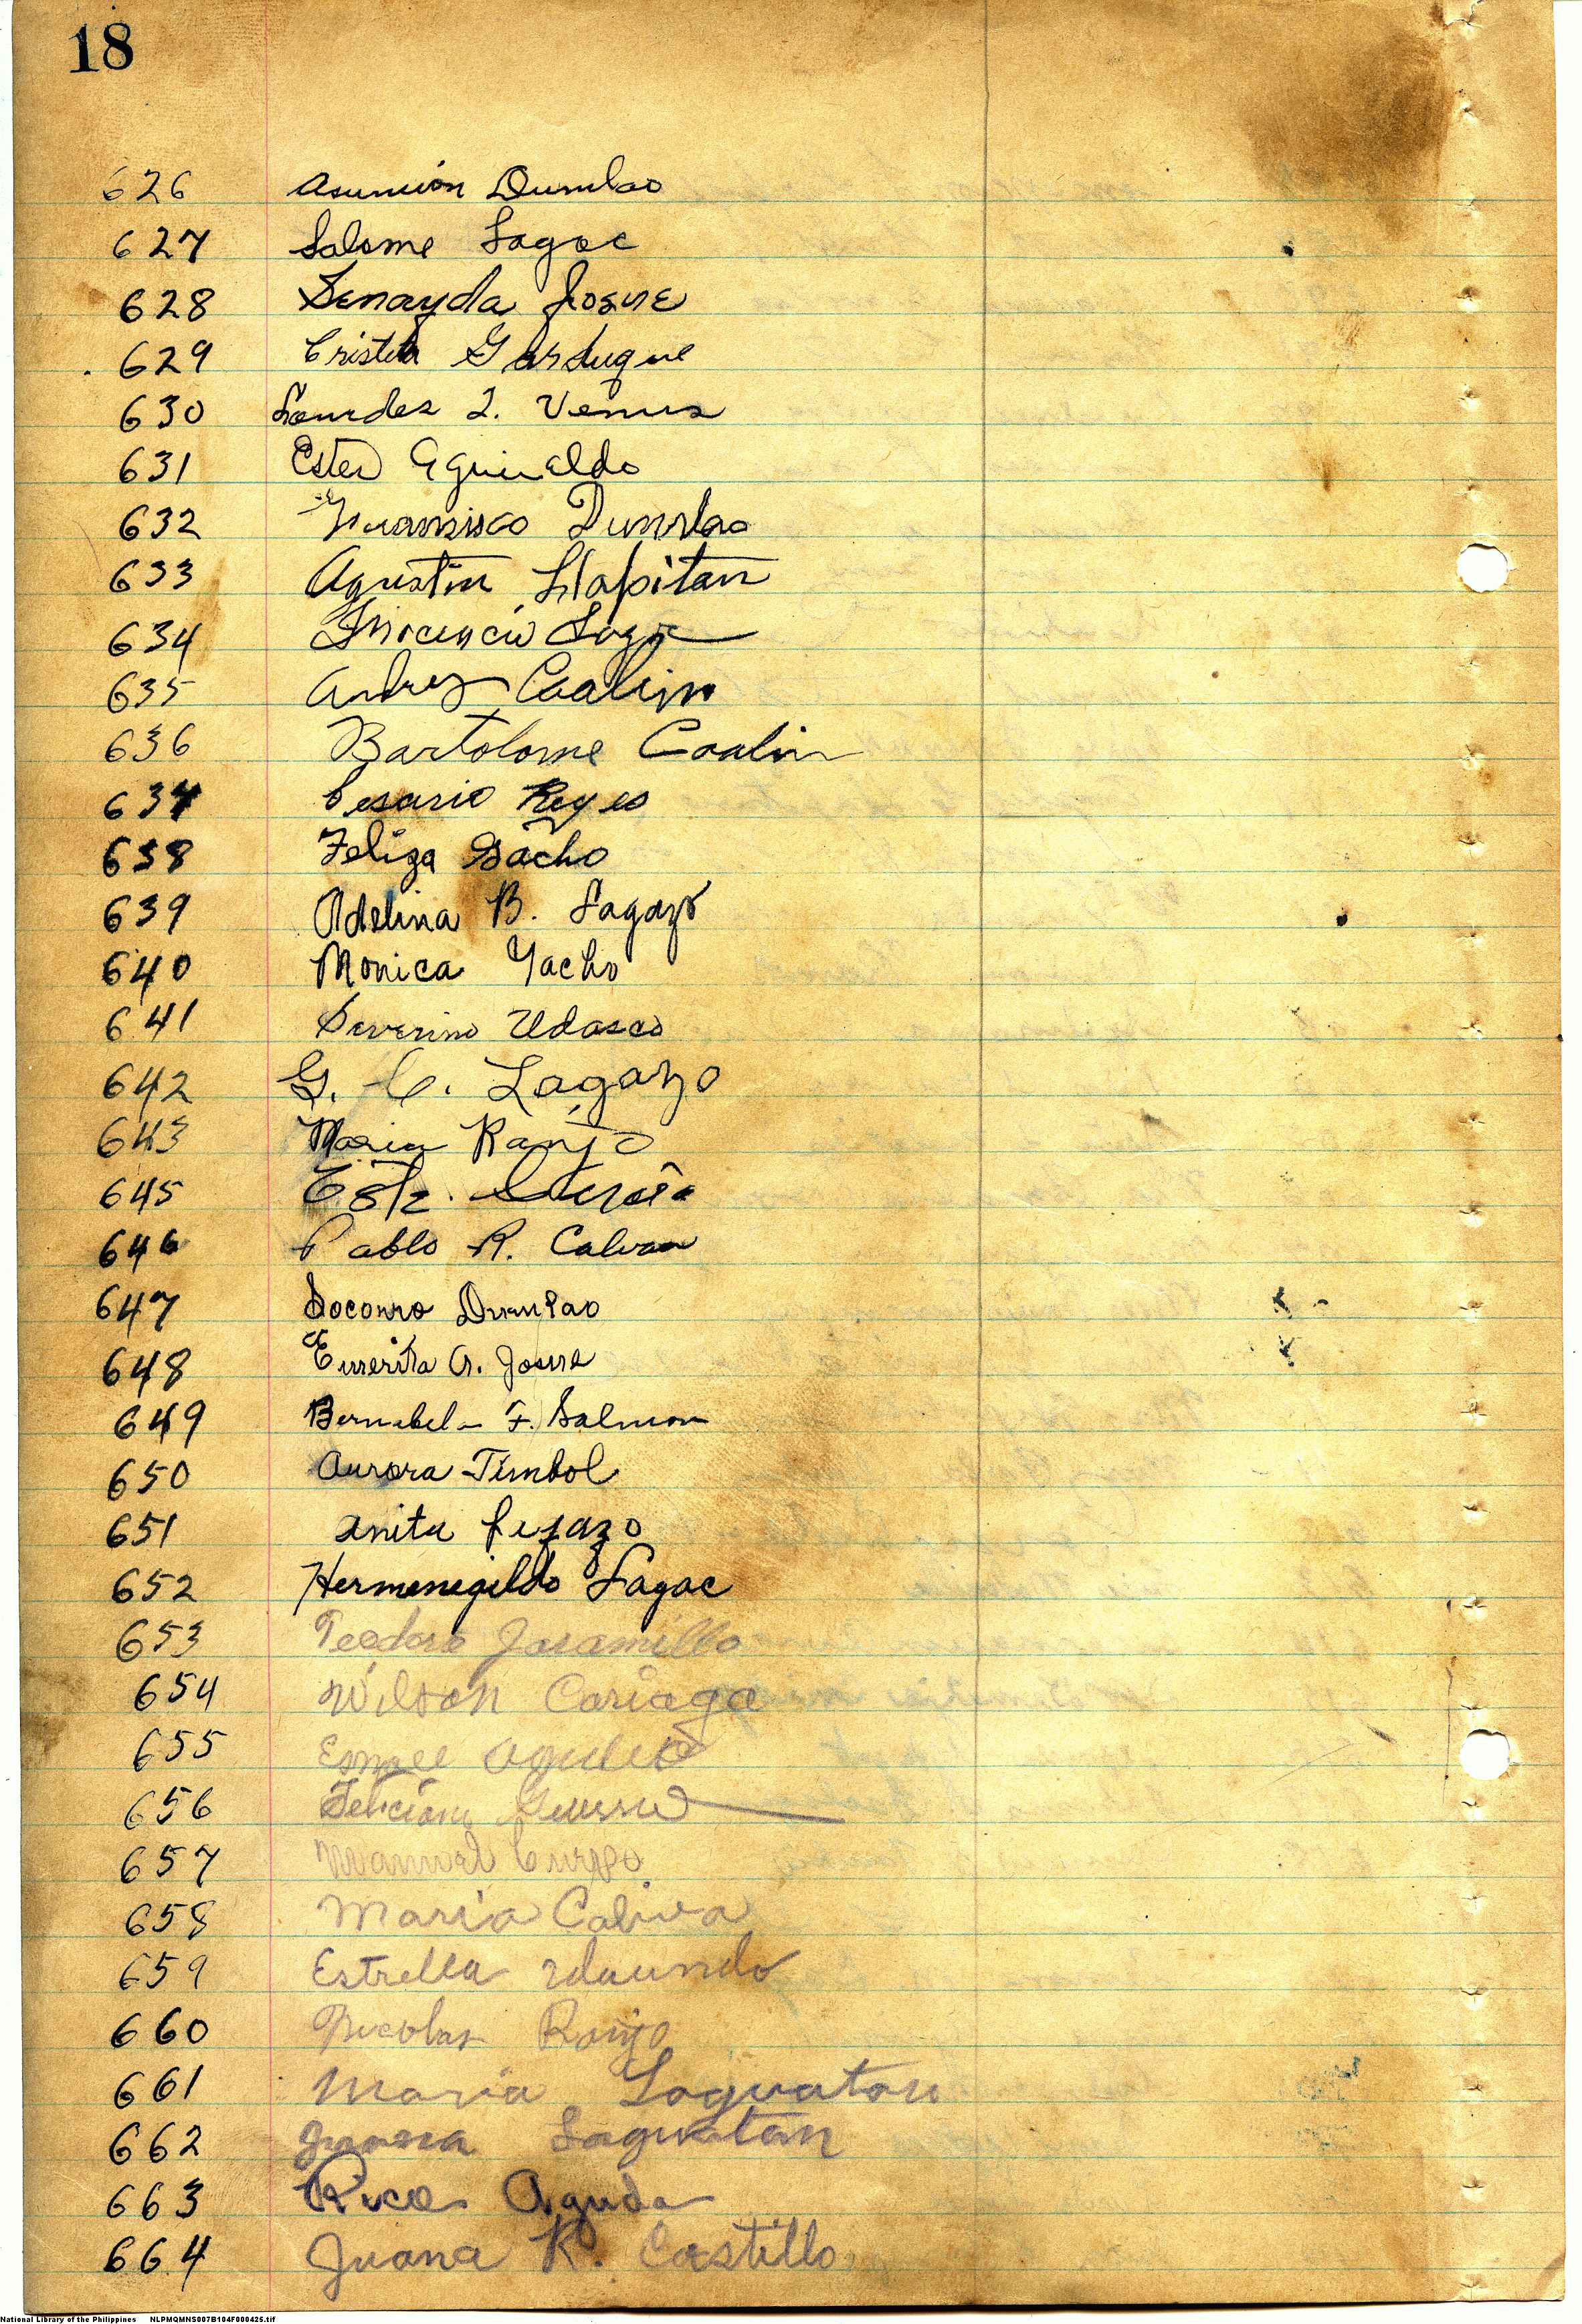 18
626 Asuncion Dumlao
627 Salome Lagoc
628 Zenayda Josue
629 Cristita Garduque
630 Lourdes I. Venus
631 Ester Aguinaldo
632 Francisco Dumlao
633 Agustin Llapitan
634 Inocencio
635 Andres Caalim
636 Bartolome Caalim
637 Cesario Reyes
638 Feliza Gacho
639 Adelina B. Lagazo
640 Monica Yacho
641 Severino Udasco
642 G. C. Lagazo
643 Maria Ranjo
645
646 Pablo R. Calvan
647 Socorro Dumlao
648 Emerita A. Josue
649 F. Salmon
650 Aurora Timbol
651 Anita
652 Hermenegildo Lagac
653 Teodoro Jaramillo
654 Wilson Cariaga
655
656
657 Manuel
658 Maria
659 Estrella
660 Nicolas Ranjo
661 Maria Laguatan
662 Laguatan
663 Aguda
664 Juana R. Castillo
National Library of the Philippines NLPMQMNS007B104F000425.tif